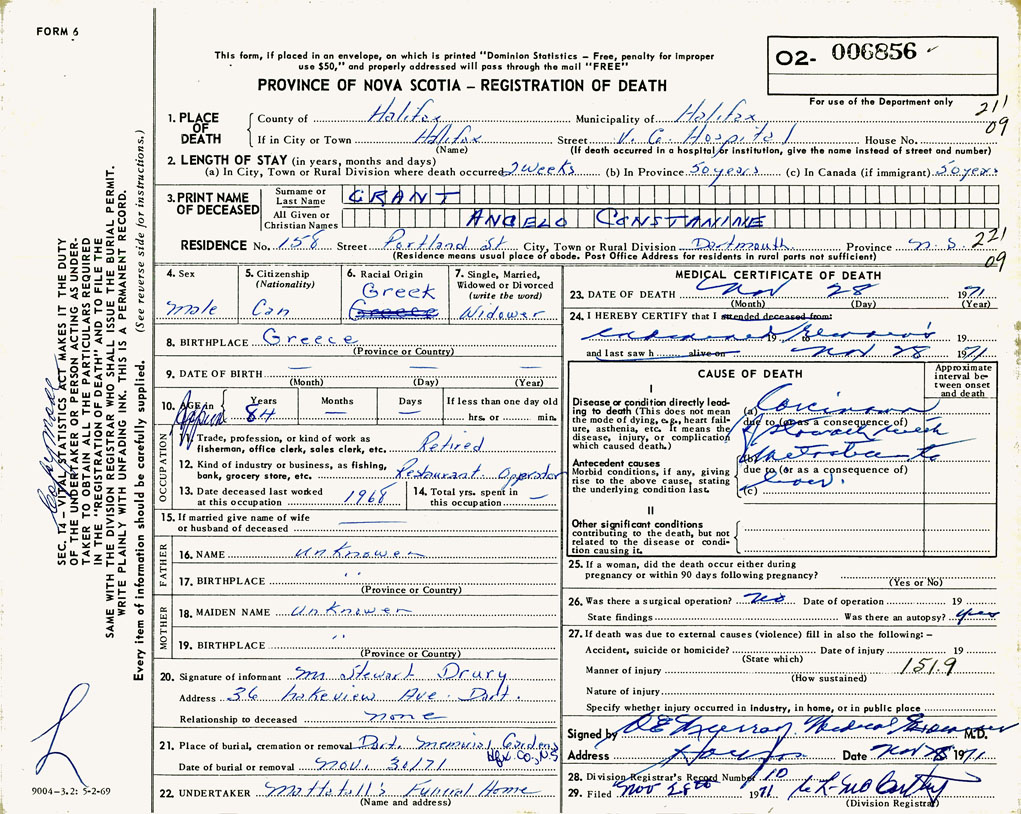 FORM 6
This form, if placed in an envelope, on which is printed "Dominion Statistics - Free, penalty for improper
use $50," and properly addressed will pass through the mail "FREE"
PROVINCE OF NOVA SCOTIA - REGISTRATION OF DEATH
O2- 006856
For use of the Department only
211
09
1. PLACE OF DEATH
County of Halifax Municipality of Halifax
If in City or Town Halifax Street V. G. Hospital House No.
(Name) (If death occurred in a hospital or institution, give the name instead of street and number)
2. LENGTH OF STAY (in years, months and days)
(a) In City, Town or Rural Division where death occurred 2 weeks (b) In Province 50 years (c) In Canada (if immigrant) 50 years
3. PRINT NAME OF DECEASED
Surname or Last Name GRANT
All Given or Christian Names ANGELO CONSTANINE
RESIDENCE No. 158 Street Portland St City, Town or Rural Division Dartmouth Province N.S. 221
(Residence means usual place of abode. Post Office Address for residents in rural parts not sufficient) 09
4. Sex
male
5. Citizenship
(Nationality)
Can
6. Racial Origin
Greek
7. Single, Married,
Widowed or Divorced
(write the word)
Widower
8. BIRTHPLACE Greece
(Province or Country)
9. DATE OF BIRTH — — —
(Month) (Day) (Year)
10. AGE in
Years
84
Months
—
Days
—
If less than one day old
hrs. or min.
OCCUPATION
11. Trade, profession, or kind of work as
fisherman, office clerk, sales clerk, etc. Retired
12. Kind of industry or business, as fishing,
bank, grocery store, etc. Restaurant Operator
13. Date deceased last worked
at this occupation 1968
14. Total yrs. spent in
this occupation —
15. If married give name of wife
or husband of deceased —
FATHER
16. NAME Unknown
17. BIRTHPLACE ' '
(Province or Country)
MOTHER
18. MAIDEN NAME Unknown
19. BIRTHPLACE ' '
(Province or Country)
20. Signature of informant M Stewart Drury
Address 36 Lakeview Ave. Dart.
Relationship to deceased none
21. Place of burial, cremation or removal Dart. Memorial Gardens
Hfx. Co., N.S
Date of burial or removal Nov. 30/71
22. UNDERTAKER Mattatall's Funeral Home
(Name and address)
MEDICAL CERTIFICATE OF DEATH
23. DATE OF DEATH Nov 28 1971
(Month) (Day) (Year)
24. I HEREBY CERTIFY that I attended deceased from:
examined 19 to 19
and last saw h alive on Nov 28 1971
CAUSE OF DEATH
Approximate
interval be-
tween onset
and death
I
Disease or condition directly lead-
ing to death (This does not mean
the mode of dying, e.g., heart fail-
ure, asthenia, etc. It means the
disease, injury, or complication
which caused death.)
(a) Carcinoma
due to (or as a consequence of)
of stomach with
(b)
Antecedent causes
Morbid conditions, if any, giving
rise to the above cause, stating
the underlying condition last.
due to (or as a consequence of)
(c) liver.
II
Other significant conditions
contributing to the death, but not
related to the disease or condi-
tion causing it.
25. If a woman, did the death occur either during
pregnancy or within 90 days following pregnancy?
(Yes or No)
26. Was there a surgical operation? No Date of operation 19
State findings Was there an autopsy? yes
27. If death was due to external causes (violence) fill in also the following: —
Accident, suicide or homicide? Date of injury 19
(State which)
Manner of injury 151.9
(How sustained)
Nature of injury
Specify whether injury occurred in industry, in home, or in public place
Signed by Medical Examiner M.D.
Address Date Nov 1971
28. Division Registrar's Record Number 10
29. Filed Nov 1971 McCarthy
(Division Registrar)
SEC. 14 - VITAL STATISTICS ACT MAKES IT THE DUTY
OF THE UNDERTAKER OR PERSON ACTING AS UNDER-
TAKER TO OBTAIN ALL THE PARTICULARS REQUIRED
IN THE "REGISTRATION OF DEATH" AND TO FILE THE
SAME WITH THE DIVISION REGISTRAR WHO SHALL ISSUE THE BURIAL PERMIT.
WRITE PLAINLY WITH UNFADING INK. THIS IS A PERMANENT RECORD.
Every item of information should be carefully supplied. (See reverse side for instructions.)
9004-3.2: 5-2-69